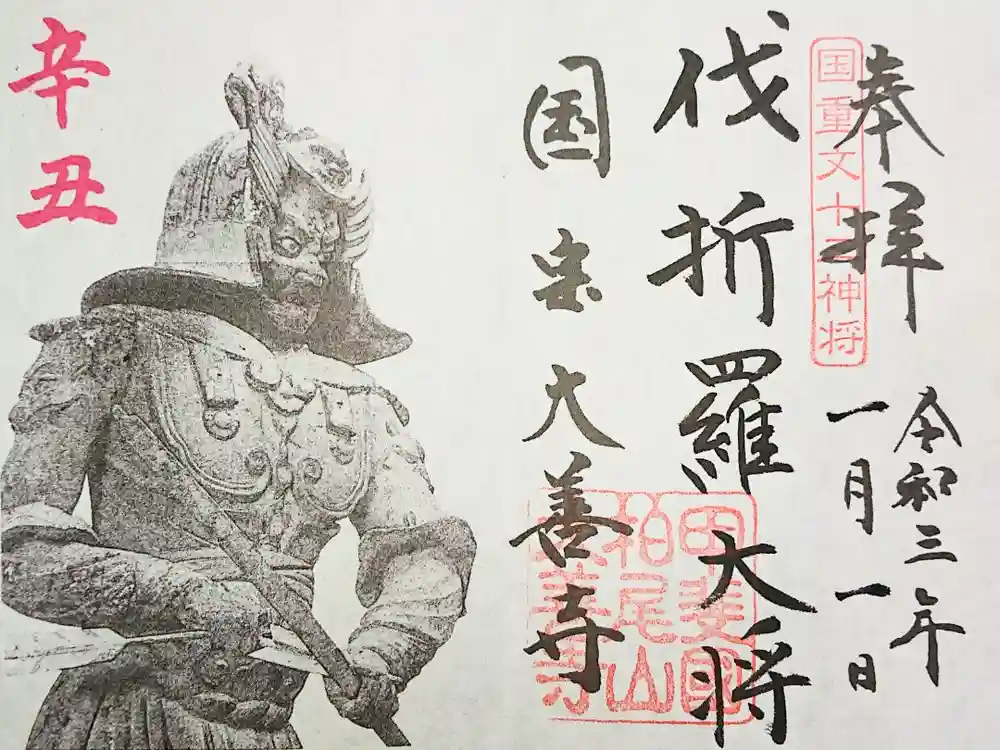 奉拝
令和三年
一月一日
国重文十二神将
伐折羅大将
国宝大善寺
甲斐國
柏尾山
大善寺
辛丑